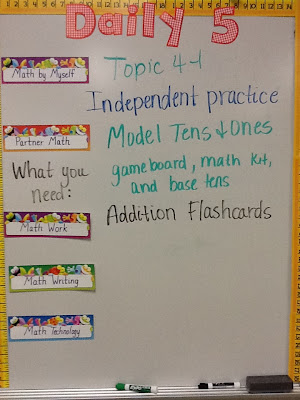 Daily 5
Math by Myself
Topic 4-1
Independent practice
Partner Math
Model Tens & Ones
What you need:
gameboard, math kit, and base tens
Math Work
Addition Flashcards
Math Writing
Math Technology